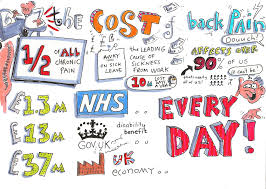 the COST of back Pain
Oouuch!
1/2 of ALL
CHRONIC
PAIN
AWAY
ON SICK
LEAVE
THE LEADING
CAUSE OF
SICKNESS
FROM WORK
10
AFFECTS OVER
90% of
OF US
£1.3M
NHS
£13M
GOV.UK
disability
benefit
£37M
UK
economy
EVERY
DAY!